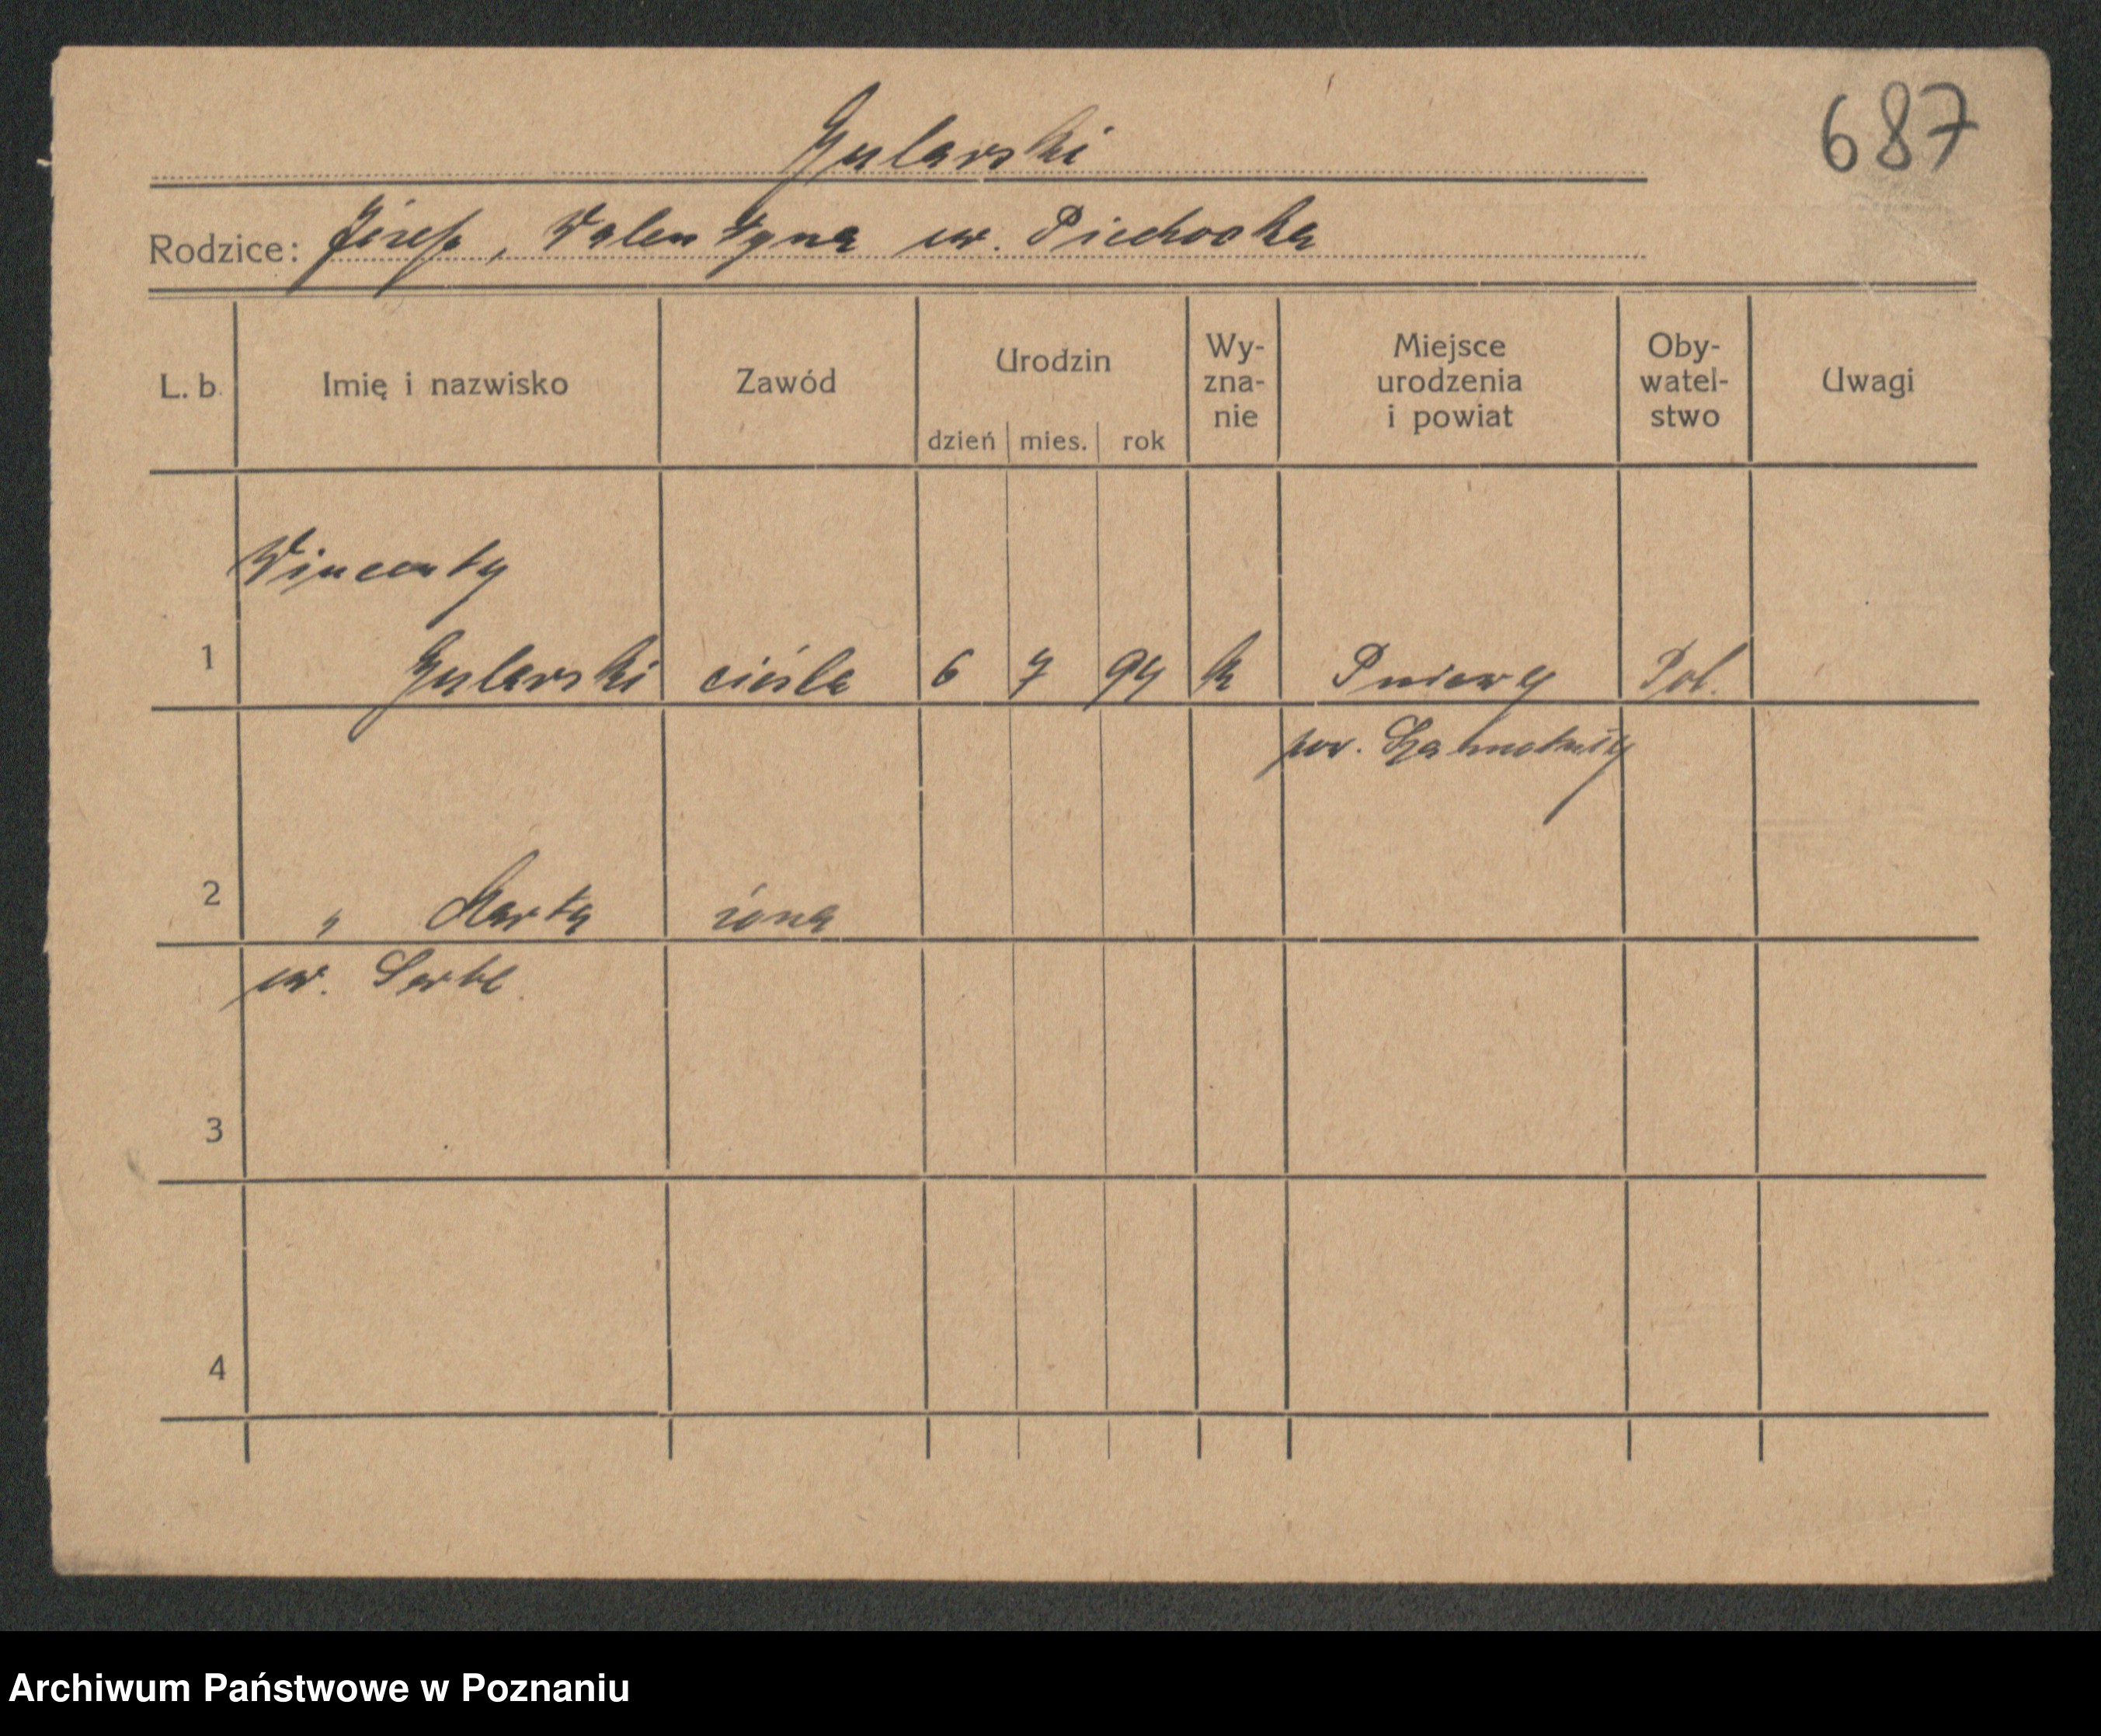 687
Gularski
Rodzice: Józefa, Walentyna ur. Piechocka
L. b. Imię i nazwisko Zawód Urodzin dzień mies. rok Wy-zna-nie Miejsce urodzenia i powiat Oby-watel-stwo Uwagi
Wincenty
1 Gularski cieśla 6 7 94 k Pniewy Pol.
pow. Szamotuły
2 " Marta żona
ur.
3
4
Archiwum Państwowe w Poznaniu